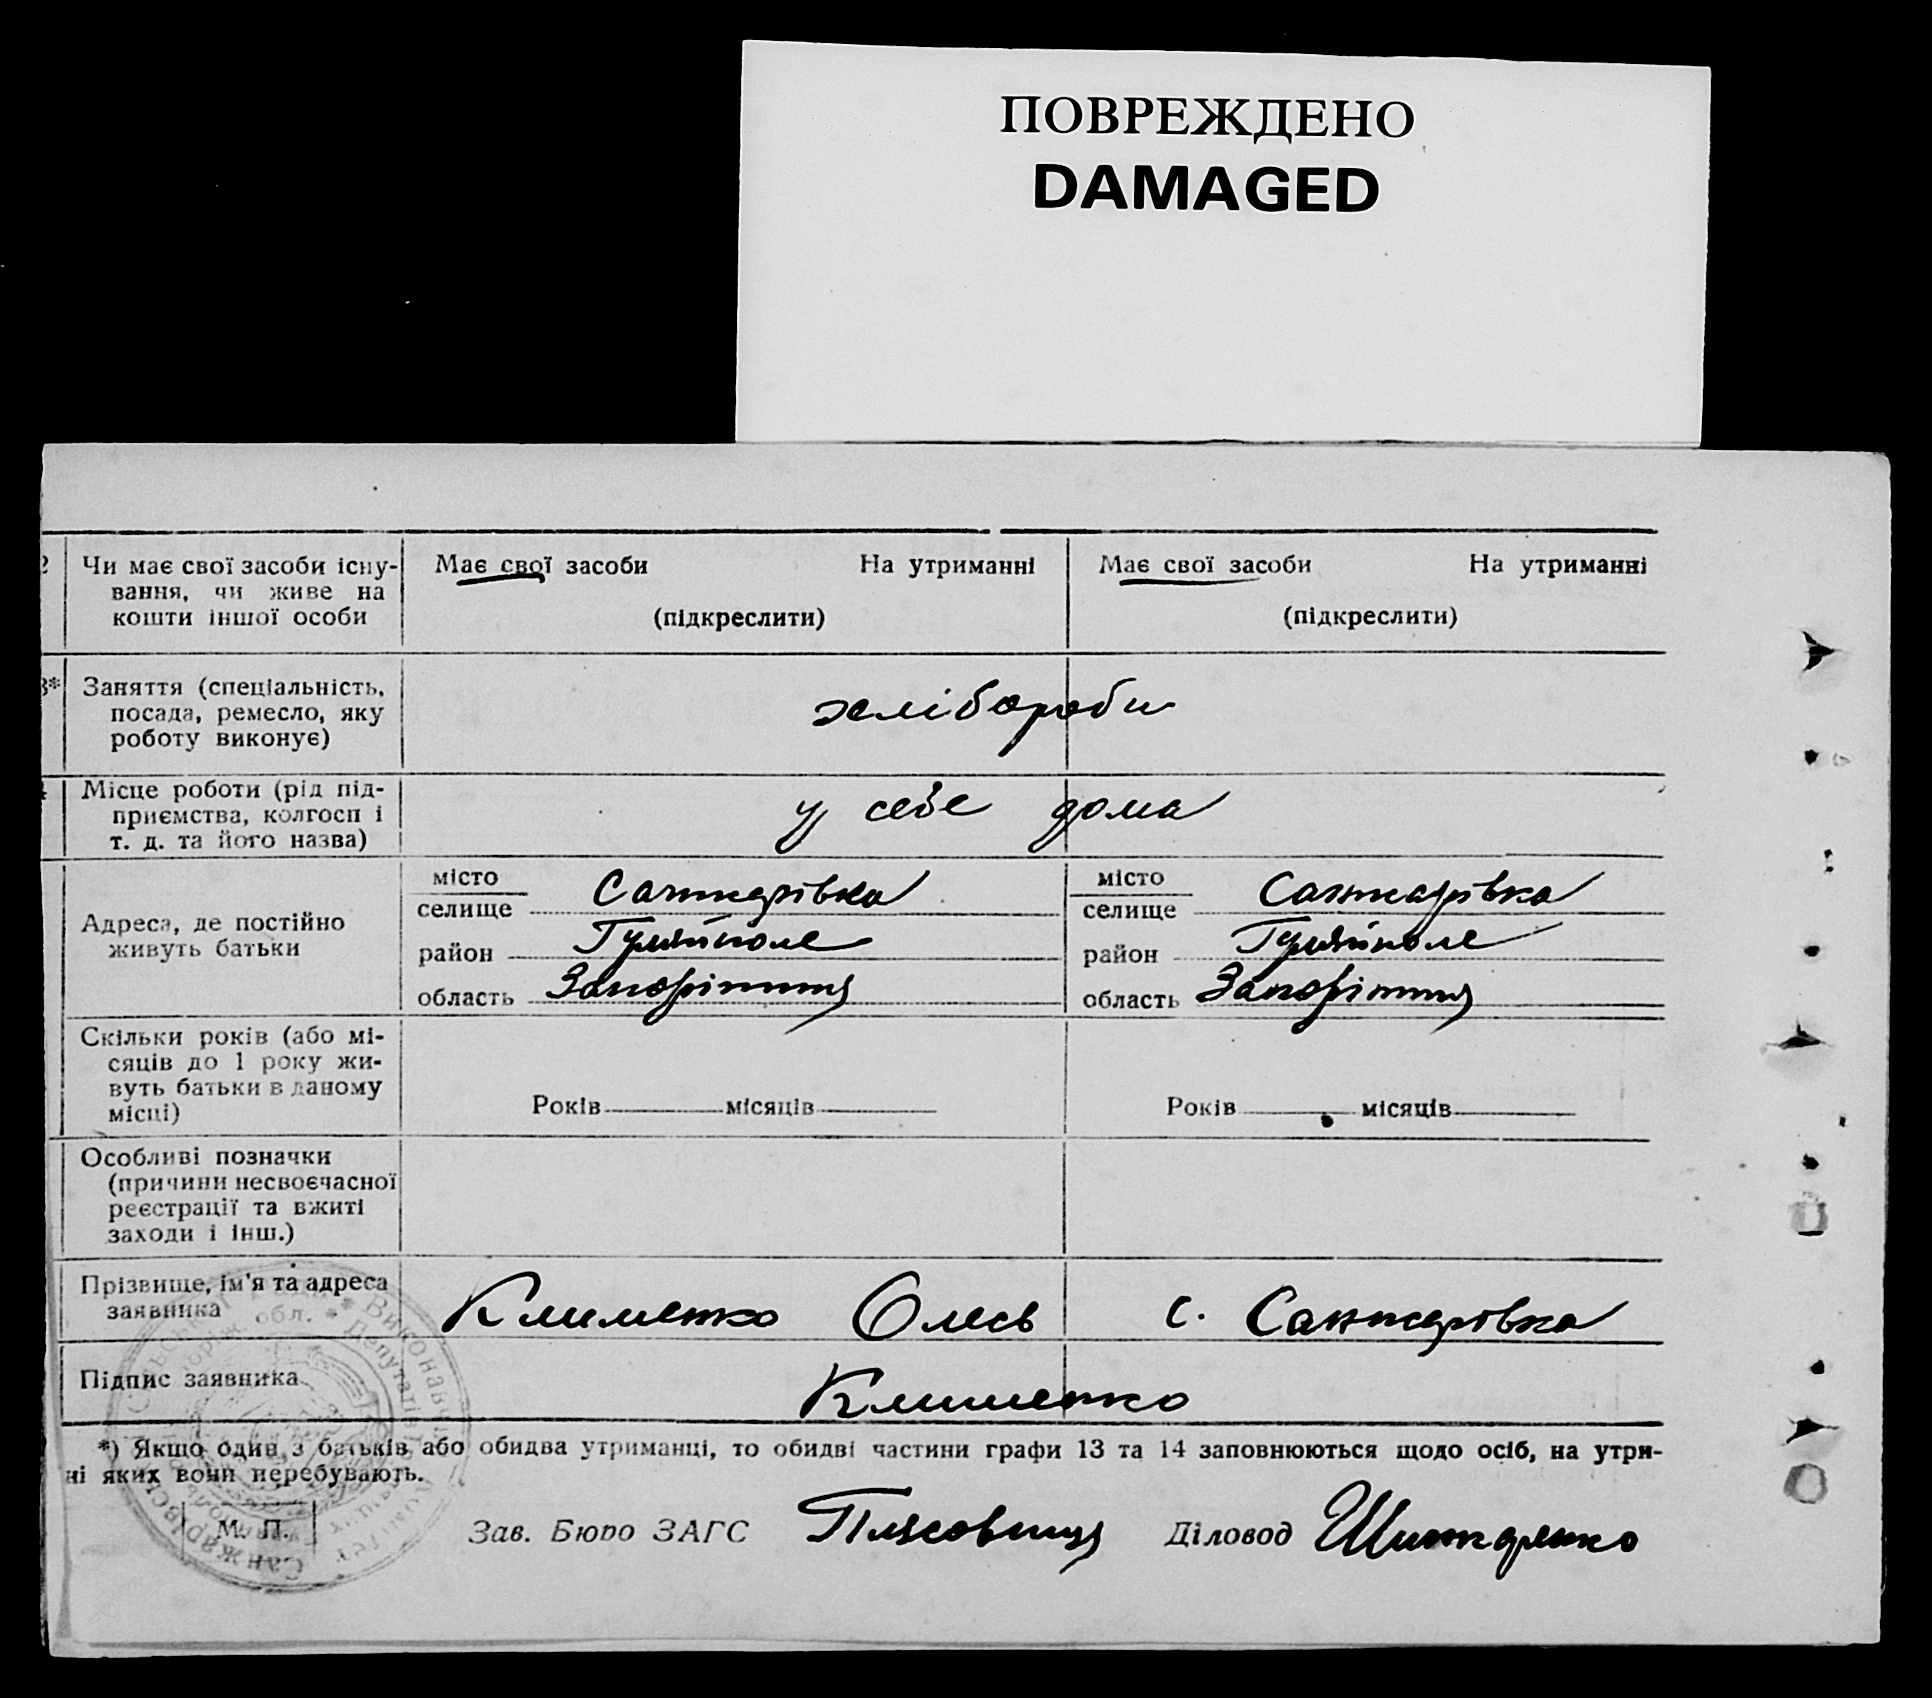 ПОВРЕЖДЕНО
DAMAGED
2 Чи має свої засоби існу-
вання, чи живе на
кошти іншої особи
Має свої засоби На утриманні
(підкреслити)
Має свої засоби На утриманні
(підкреслити)
3* Заняття (спеціальність,
посада, ремесло, яку
роботу виконує)
хлібороби
Місце роботи (рід під-
приємства, колгосп і
т. д. та його назва)
у себе дома
Адреса, де постійно
живуть батьки
місто
селище Санжарівка
район Гуляйполе
область Запоріжжя
місто
селище Санжарівка
район Гуляйполе
область Запоріжжя
Скільки років (або мі-
сяців до 1 року жи-
вуть батьки в даному
місці)
Років місяців
Років місяців
Особливі позначки
(причини несвоєчасної
реєстрації та вжиті
заходи і інш.)
Прізвище, ім'я та адреса
заявника
Клименко Олесь с. Санжарівка
Підпис заявника
Клименко
*) Якщо один з батьків або обидва утриманці, то обидві частини графи 13 та 14 заповнюються щодо осіб, на утри-
ні яких вони перебувають.
М. П.
Зав. Бюро ЗАГС Діловод